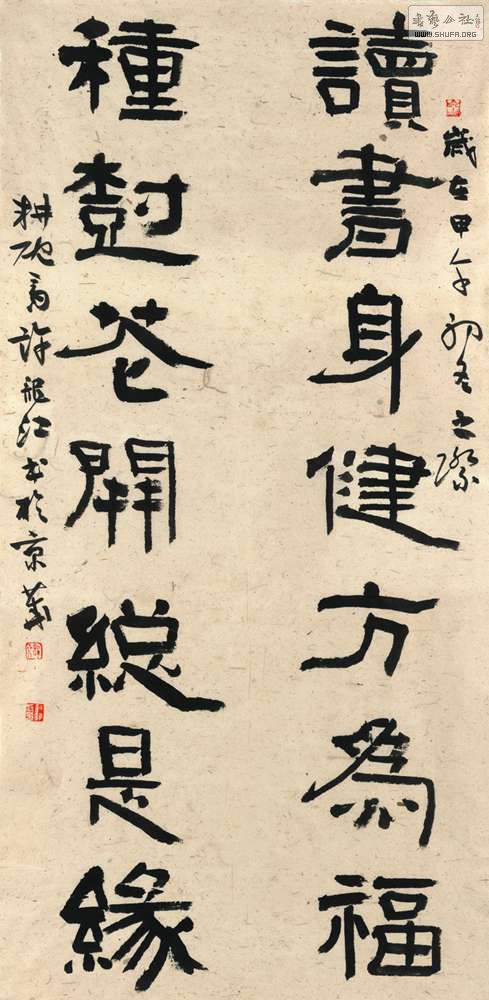 書藝公社
WWW.SHUFA.ORG
歲在甲午初之際
讀書身健方為福
種樹花開總是緣
耕硯齋許龍江書於京華